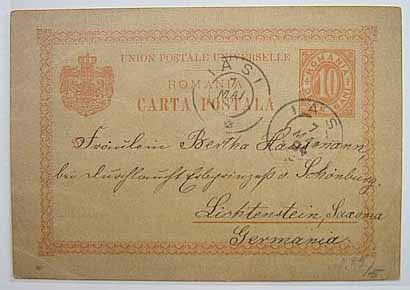 UNION POSTALE UNIVERSELLE
ROMANIA
CARTA POSTALA
ROMANIA
10
BANI
IASI
7
MAI
IAS
7
Fräulein Bertha
bei Durchlaucht Erbprinzeß v. Schönburg.
Lichtenstein, Saxonia
Germania.